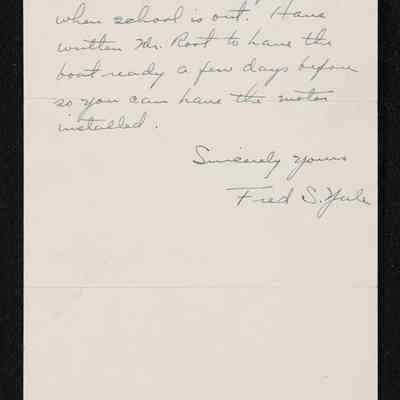 when school is out. Have
written Mr. Root to have the
boat ready a few days before
so you can have the motor
installed.
Sincerely yours
Fred S. Yule